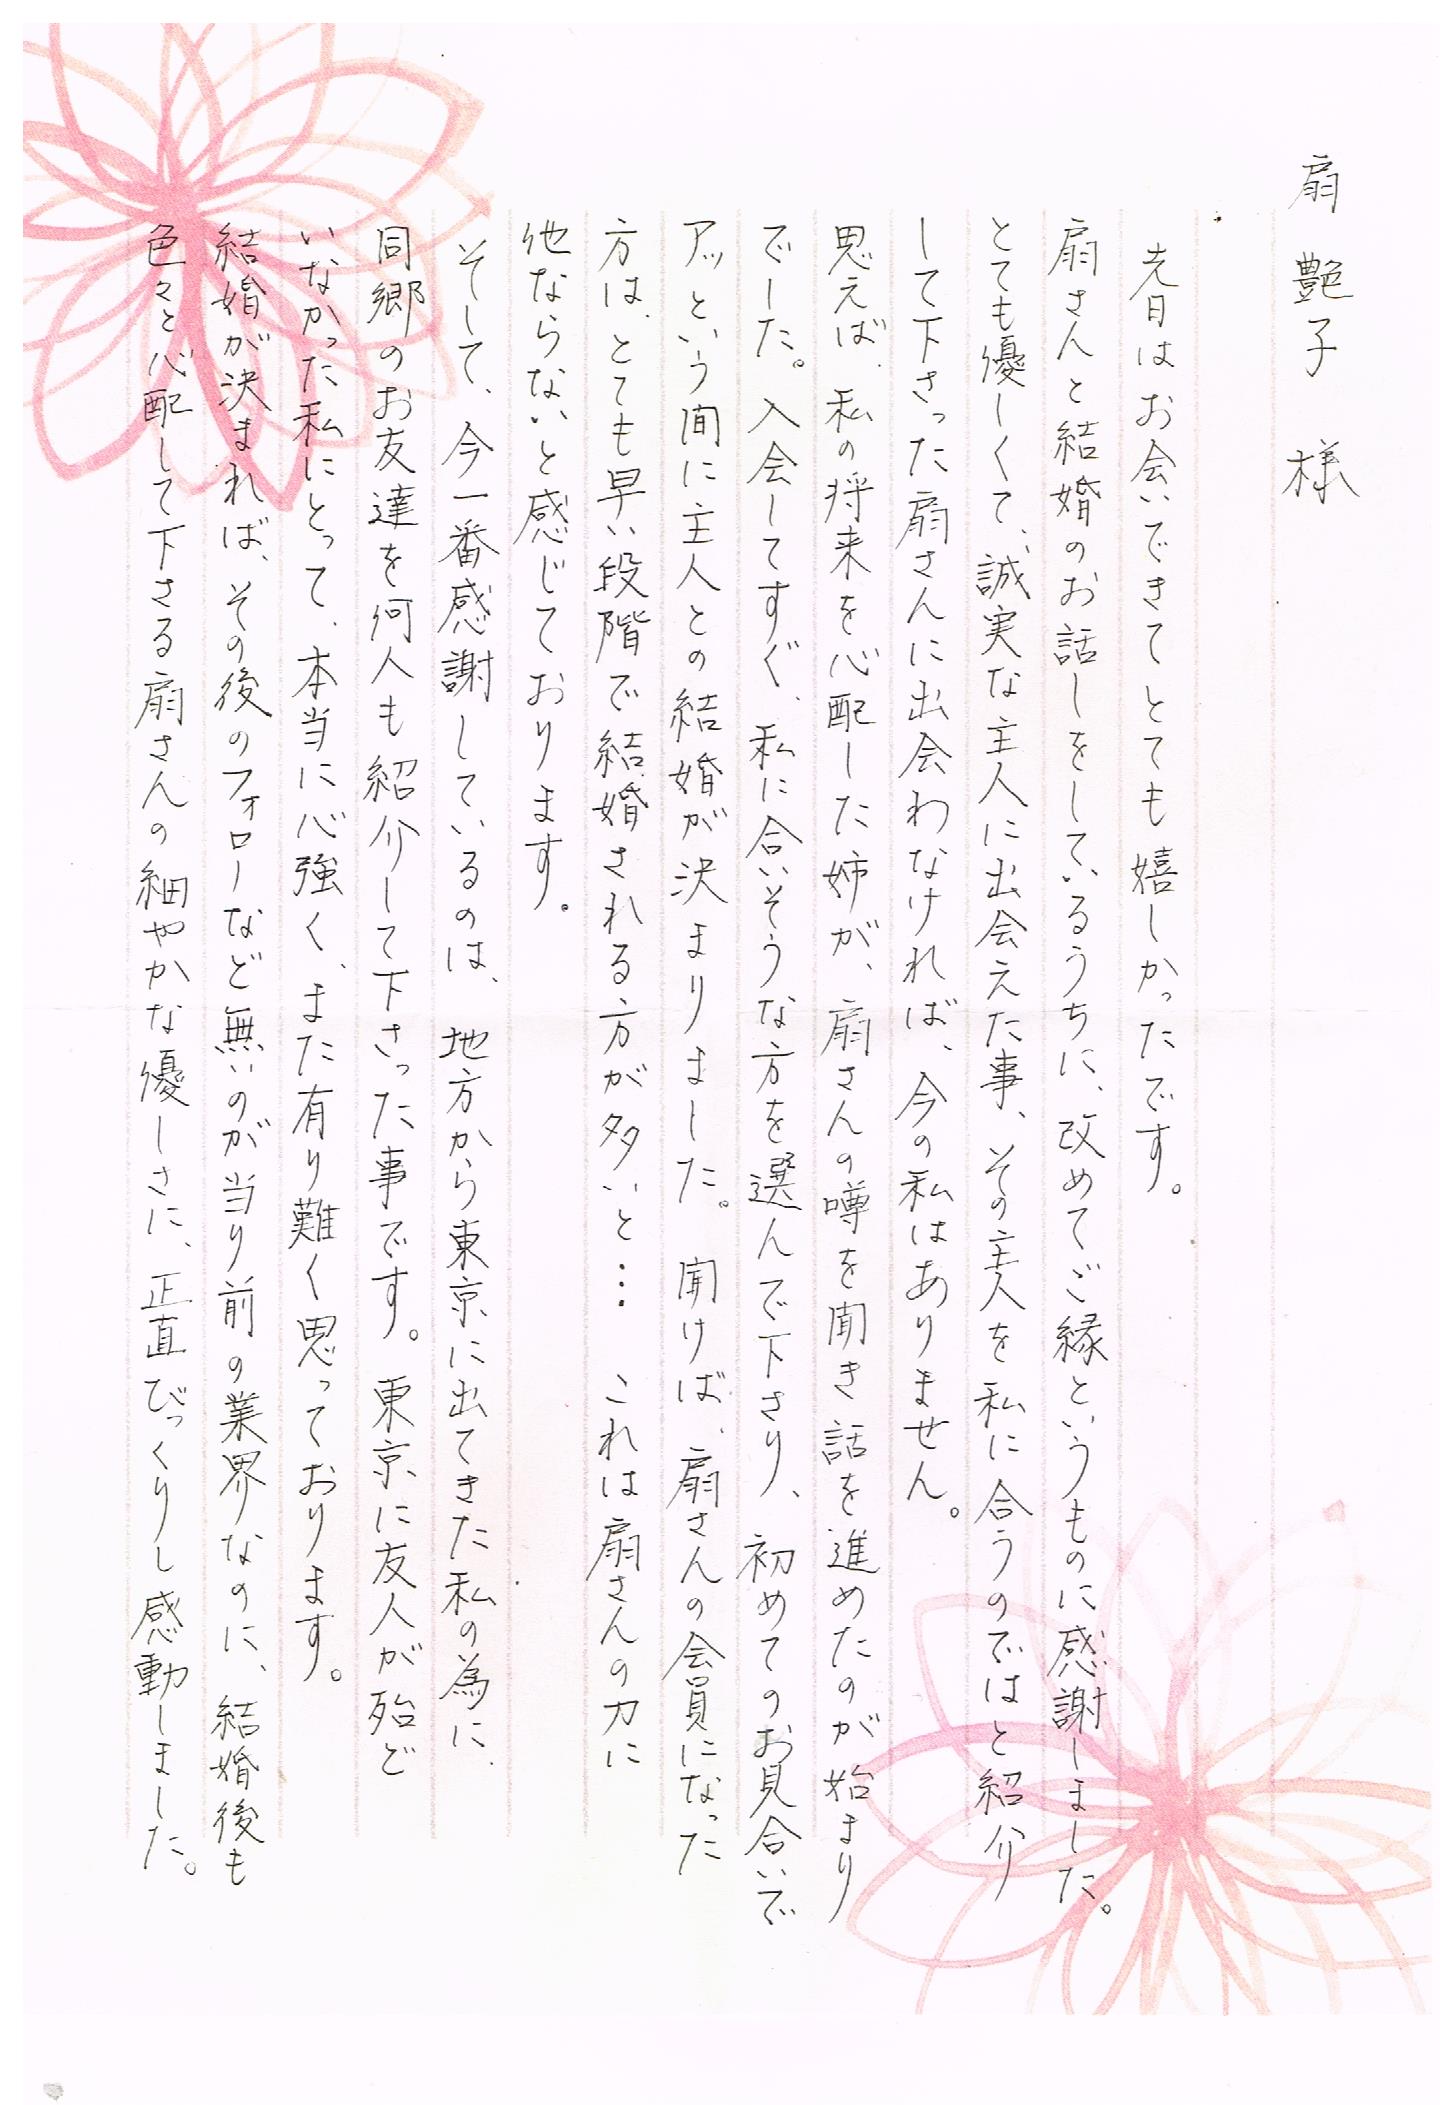 扇 艶子 様
先日はお会いできてとても嬉しかったです。
扇さんと結婚のお話しをしているうちに、改めてご縁というものに感謝しました。
とても優しくて、誠実な主人に出会えた事、その主人を私に合うのではと紹介
して下さった扇さんに出会わなければ、今の私はありません。
思えば、私の将来を心配した姉が、扇さんの噂を聞き話を進めたのが始まり
でした。入会してすぐ、私に合いそうな方を選んで下さり、初めてのお見合いで
アッという間に主人との結婚が決まりました。聞けば、扇さんの会員になった
方は、とても早い段階で結婚される方が多いと… これは扇さんの力に
他ならないと感じております。
そして、今一番感謝しているのは、地方から東京に出てきた私の為に、
同郷のお友達を何人も紹介して下さった事です。東京に友人が殆ど
いなかった私にとって、本当に心強く、また有り難く思っております。
結婚が決まれば、その後のフォローなど無いのが当り前の業界なのに、結婚後も
色々と心配して下さる扇さんの細やかな優しさに、正直びっくりし感動しました。